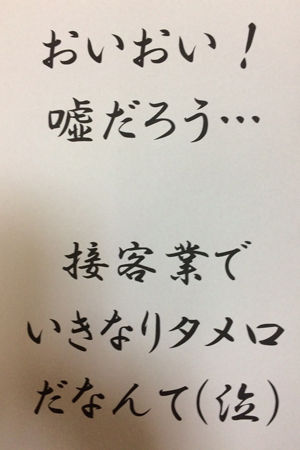 おいおい！
嘘だろう…
接客業で
いきなりタメ口
だなんて(泣)